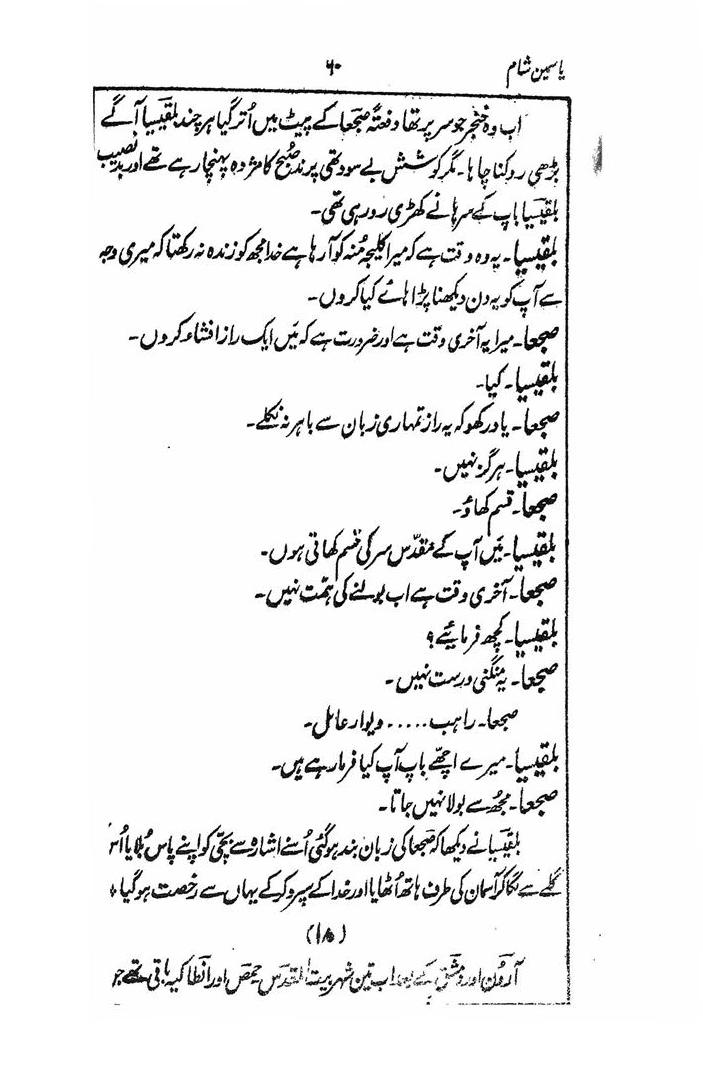 یاسمین شام
۶۰
اب وہ خنجر جو سر پر تھا دفعتہً صبحعا کے پیٹ میں اُتر گیا ہر چند بلقیسیا آگے
بڑھی روکنا چاہا۔ مگر کوشش بے سود تھی پرند صبح کا مژدہ پہنچا رہے تھے اور بدنصیب
بلقیسیا باپ کے سرہانے کھڑی رو رہی تھی۔
بلقیسیا۔ یہ وہ وقت ہے کہ میرا کلیجہ مُنہ کو آ رہا ہے خدا مجھ کو زندہ نہ رکھتا کہ میری وجہ
سے آپ کو یہ دن دیکھنا پڑا ہائے کیا کروں۔
صبحعا۔ میرا یہ آخری وقت ہے اور ضرورت ہے کہ میں ایک راز افشاء کروں۔
بلقیسیا۔ کیا۔
صبحعا۔ یاد رکھو کہ یہ راز تمہاری زبان سے باہر نہ نکلے۔
بلقیسیا۔ ہرگز نہیں۔
صبحعا۔ قسم کھاؤ۔
بلقیسیا۔ میں آپ کے مقدّس سر کی قسم کھاتی ہوں۔
صبحعا۔ آخری وقت ہے اب بولنے کی ہمّت نہیں۔
بلقیسیا۔ کچھ فرمائیے؟
صبحعا۔ یہ منگنی درست نہیں۔
صبحعا۔ راہب..... دیوار عامل۔
بلقیسیا۔ میرے اچھّے باپ آپ کیا فرما رہے ہیں۔
صبحعا۔ مجھُ سے بولا نہیں جاتا۔
بلقیسیا نے دیکھا کہ صبحعا کی زبان بند ہو گئی اُسنے اشارہ سے بچّی کو اپنے پاس بُلایا اُس
گلے سے لگا کر آسمان کی طرف ہاتھ اُٹھایا اور خدا کے سپرد کر کے یہاں سے رخصت ہو گیا +
(۱۸)
آرون اور دمشق کے بعد اب تین شہر بیت المقدس حمص اور انطاکیہ باقی تھے جو